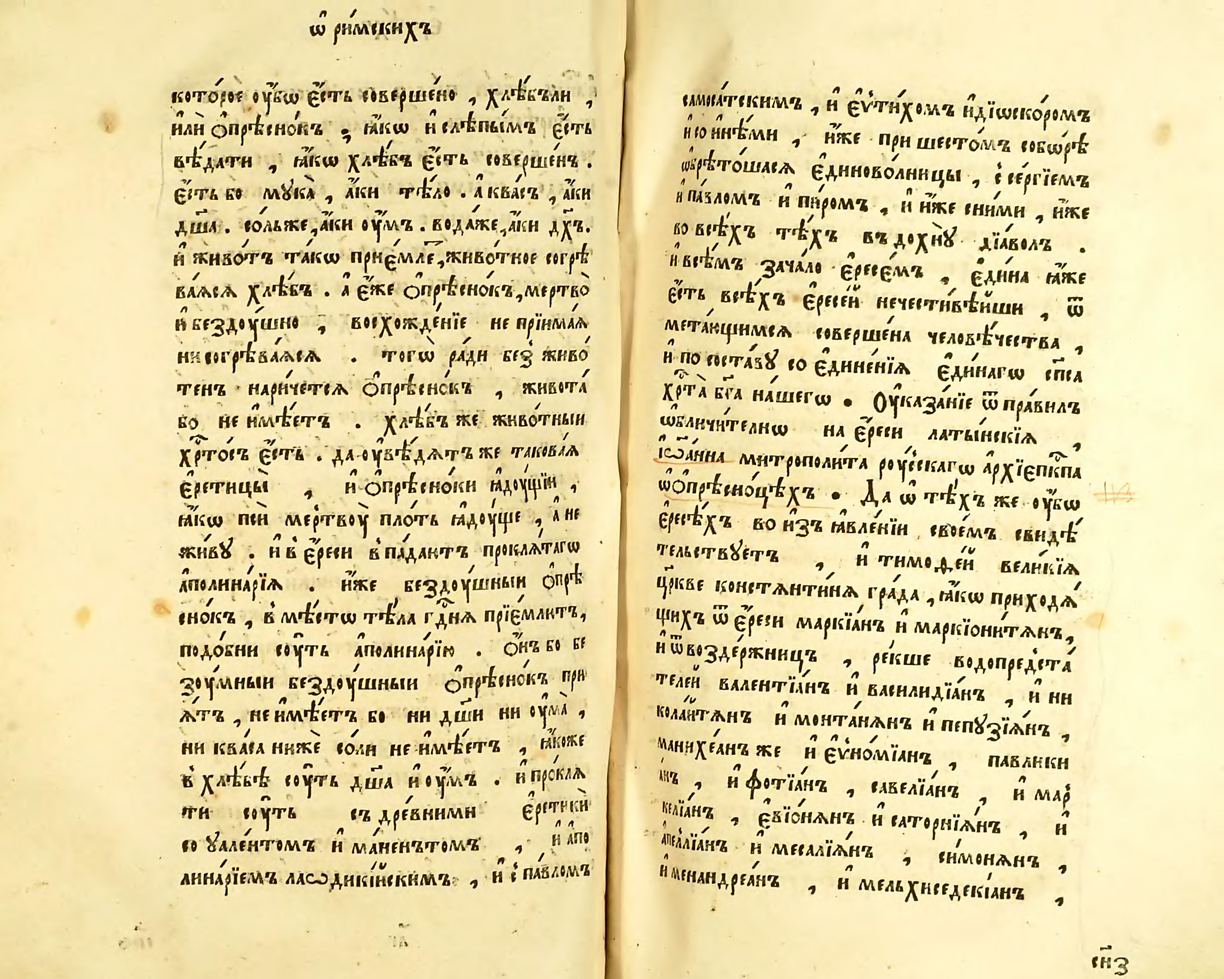 ѡ҃ ри́мскихъ
кото́рое ᲂу҆́бѡ є҆́сть соверше́но , хлѣ́бъли ,
и҆лѝ ѻ҆прѣсно́къ , ꙗ҆́кѡ и҆ слѣпы́мъ є҆́сть
вѣ́дати , ꙗ҆́кѡ хлѣ́бъ є҆́сть соверше́нъ .
є҆́сть бо мꙋка̀ , а҆́ки тѣ́ло . а҆ ква́съ , а҆́ки
дш҃а . со́льже , а҆́ки ᲂу҆́мъ . вода́же , а҆́ки дх҃ъ .
и҆ живо́тъ та́кѡ прїе́мле , живо́тное согрѣ
ва́ѧсѧ хлѣ́бъ . а҆ є҆́же ѻ҆прѣсно́къ , ме́ртво
и҆ бездоу́шно , восхожде́нїе не прїима́ѧ
ни согрѣва́ѧсѧ . тогѡ̀ ра́ди без живо́
тенъ нарече́тсѧ ѻ҆прѣсно́къ , живота̀
бо не и҆мѣ́етъ . хлѣ́бъ же живо́тныи
хрⷭ҇то́съ є҆́сть . да ᲂу҆вѣ́дѧтъ же такова́ѧ
є҆рети́цы , и҆ ѻ҆прѣсно́ки ꙗ҆дꙋ́щїи ,
ꙗ҆́кѡ псѝ ме́ртвоу пло́ть ꙗ҆дꙋ́ще , а҆ не
жи́вꙋ . и҆ в є҆́реси впа́даютъ проклѧ́тагѡ
а҆полина́рїѧ . и҆́же бездоу́шныи ѻ҆прѣ
сно́къ , в мѣ́стѡ тѣ́ла гдⷭ҇нѧ прїе́млютъ ,
подо́бни соу́ть а҆полина́рїю . ѻ҆́нъ бо бе
зоу́мныи бездоу́шныи ѻ҆прѣсно́къ при
ѧ́тъ , не и҆мѣ́етъ бо ни дш҃и ни ᲂу҆ма̀ ,
ни ква́са нижѐ со́ли не и҆мѣ́етъ , ꙗ҆́коже
в хлѣ́бѣ соу́ть дш҃а и҆ ᲂу҆́мъ . и҆ проклѧ́
ти соу́ть съ дре́вними є҆ретикѝ
со ꙋале́нтомъ и҆ мане́нътомъ , и҆ а҆по
лина́рїемъ лаѡдикі́йскимъ , и҆ с па́вломъ
самоса́тскимъ , и҆ є҆ѵти́хомъ и҆ дїѡско́ромъ
и҆ со и҆нѣ́ми , и҆́же при шесто́мъ собѡ́рѣ
ѡ҆брѣто́шасѧ є҆диново́лницы , с се́ргїемъ
и҆ па́вломъ и҆ пи́ромъ , и҆ и҆́же сни́ми , и҆́же
во всѣ́хъ тѣ́хъ въдохнꙋ̀ дїа́волъ .
и҆ всѣ́мъ зача́ло є҆ресе́мъ , є҆ди́на ꙗ҆́же
є҆́сть всѣ́хъ є҆ресе́й нечести́вѣйши , ѿ
мета́ющимсѧ соверше́на человѣ́чества ,
и҆ по соста́вꙋ со є҆дине́нїѧ є҆ди́нагѡ сп҃са
хрⷭ҇та̀ бг҃а на́шегѡ . Оу҆каза́нїе ѿ пра́вилъ
ѡ҆бличи́телнѡ на є҆́реси латы́нскїѧ ,
і҆ѡа́нна митрополи́та роу́сскагѡ а҆рхїепⷭ҇кпа
ѡ҆ ѻ҆прѣсно́цѣхъ . Да ѡ҆ тѣ́хъ же ᲂу҆́бѡ
є҆ресѣ́хъ во и҆зъꙗвле́нїи свое́мъ свидѣ́
тельствꙋетъ , и҆ тимоѳе́й вели́кїѧ
цр҃кве констѧнти́нѧ гра́да , ꙗ҆́кѡ приходѧ́
щихъ ѿ є҆́реси маркїа́нъ и҆ маркїони́тѧнъ ,
и҆ ѿ возде́ржницъ , ре́кше водопредста́
телей валентїа́нъ и҆ василидїа́нъ , и҆ ни
кола́итѧнъ и҆ монта́нѧнъ и҆ пепꙋзїѧ́нъ ,
манихе́анъ же и҆ є҆ѵномїа́нъ , павлики
а́нъ , и҆ фотїа́нъ , савелїа́нъ , и҆ мар
келїа́нъ , є҆вїо́нѧнъ и҆ саторнїѧ́нъ , и҆
а҆пеллїа́нъ и҆ месалїѧ́нъ , симо́нѧнъ ,
и҆ менандреа́нъ , и҆ мельхиседекїа́нъ ,
сн҃з